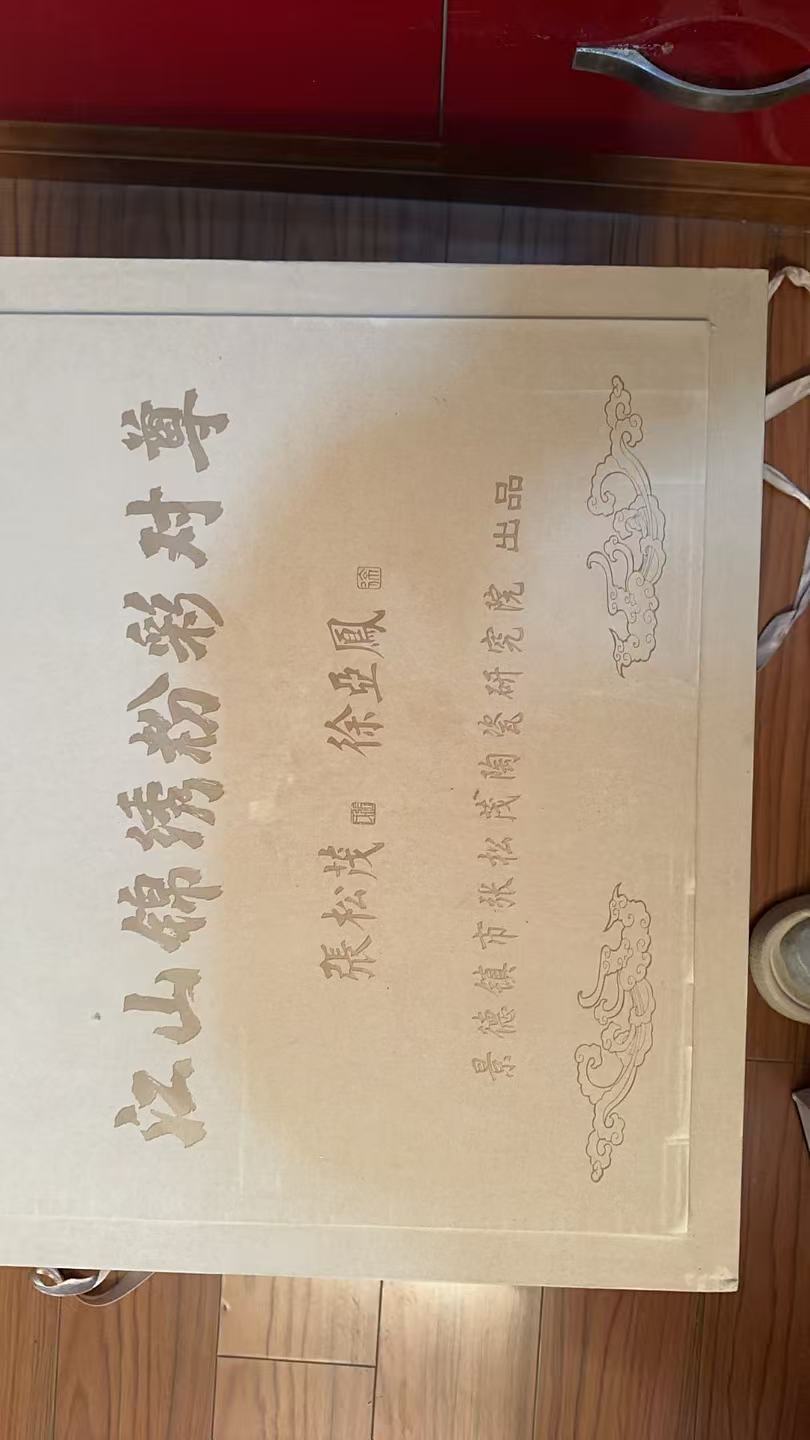 江山锦绣粉彩对尊
張松茂 徐亞鳳
景德镇市张松茂陶瓷研究院 出品